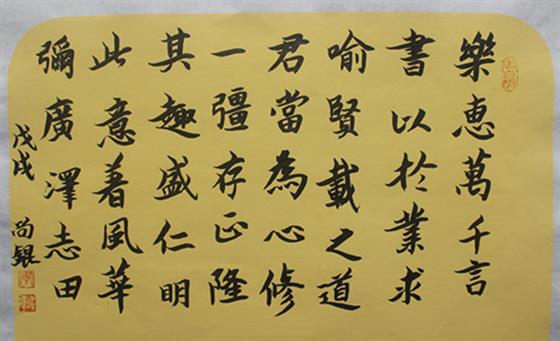 樂惠萬千言
書以於業求
喻賢載之道
君當為心修
一彊存正隆
其趣盛仁明
此意着風華
彌廣澤志田
戊戌 尚銀